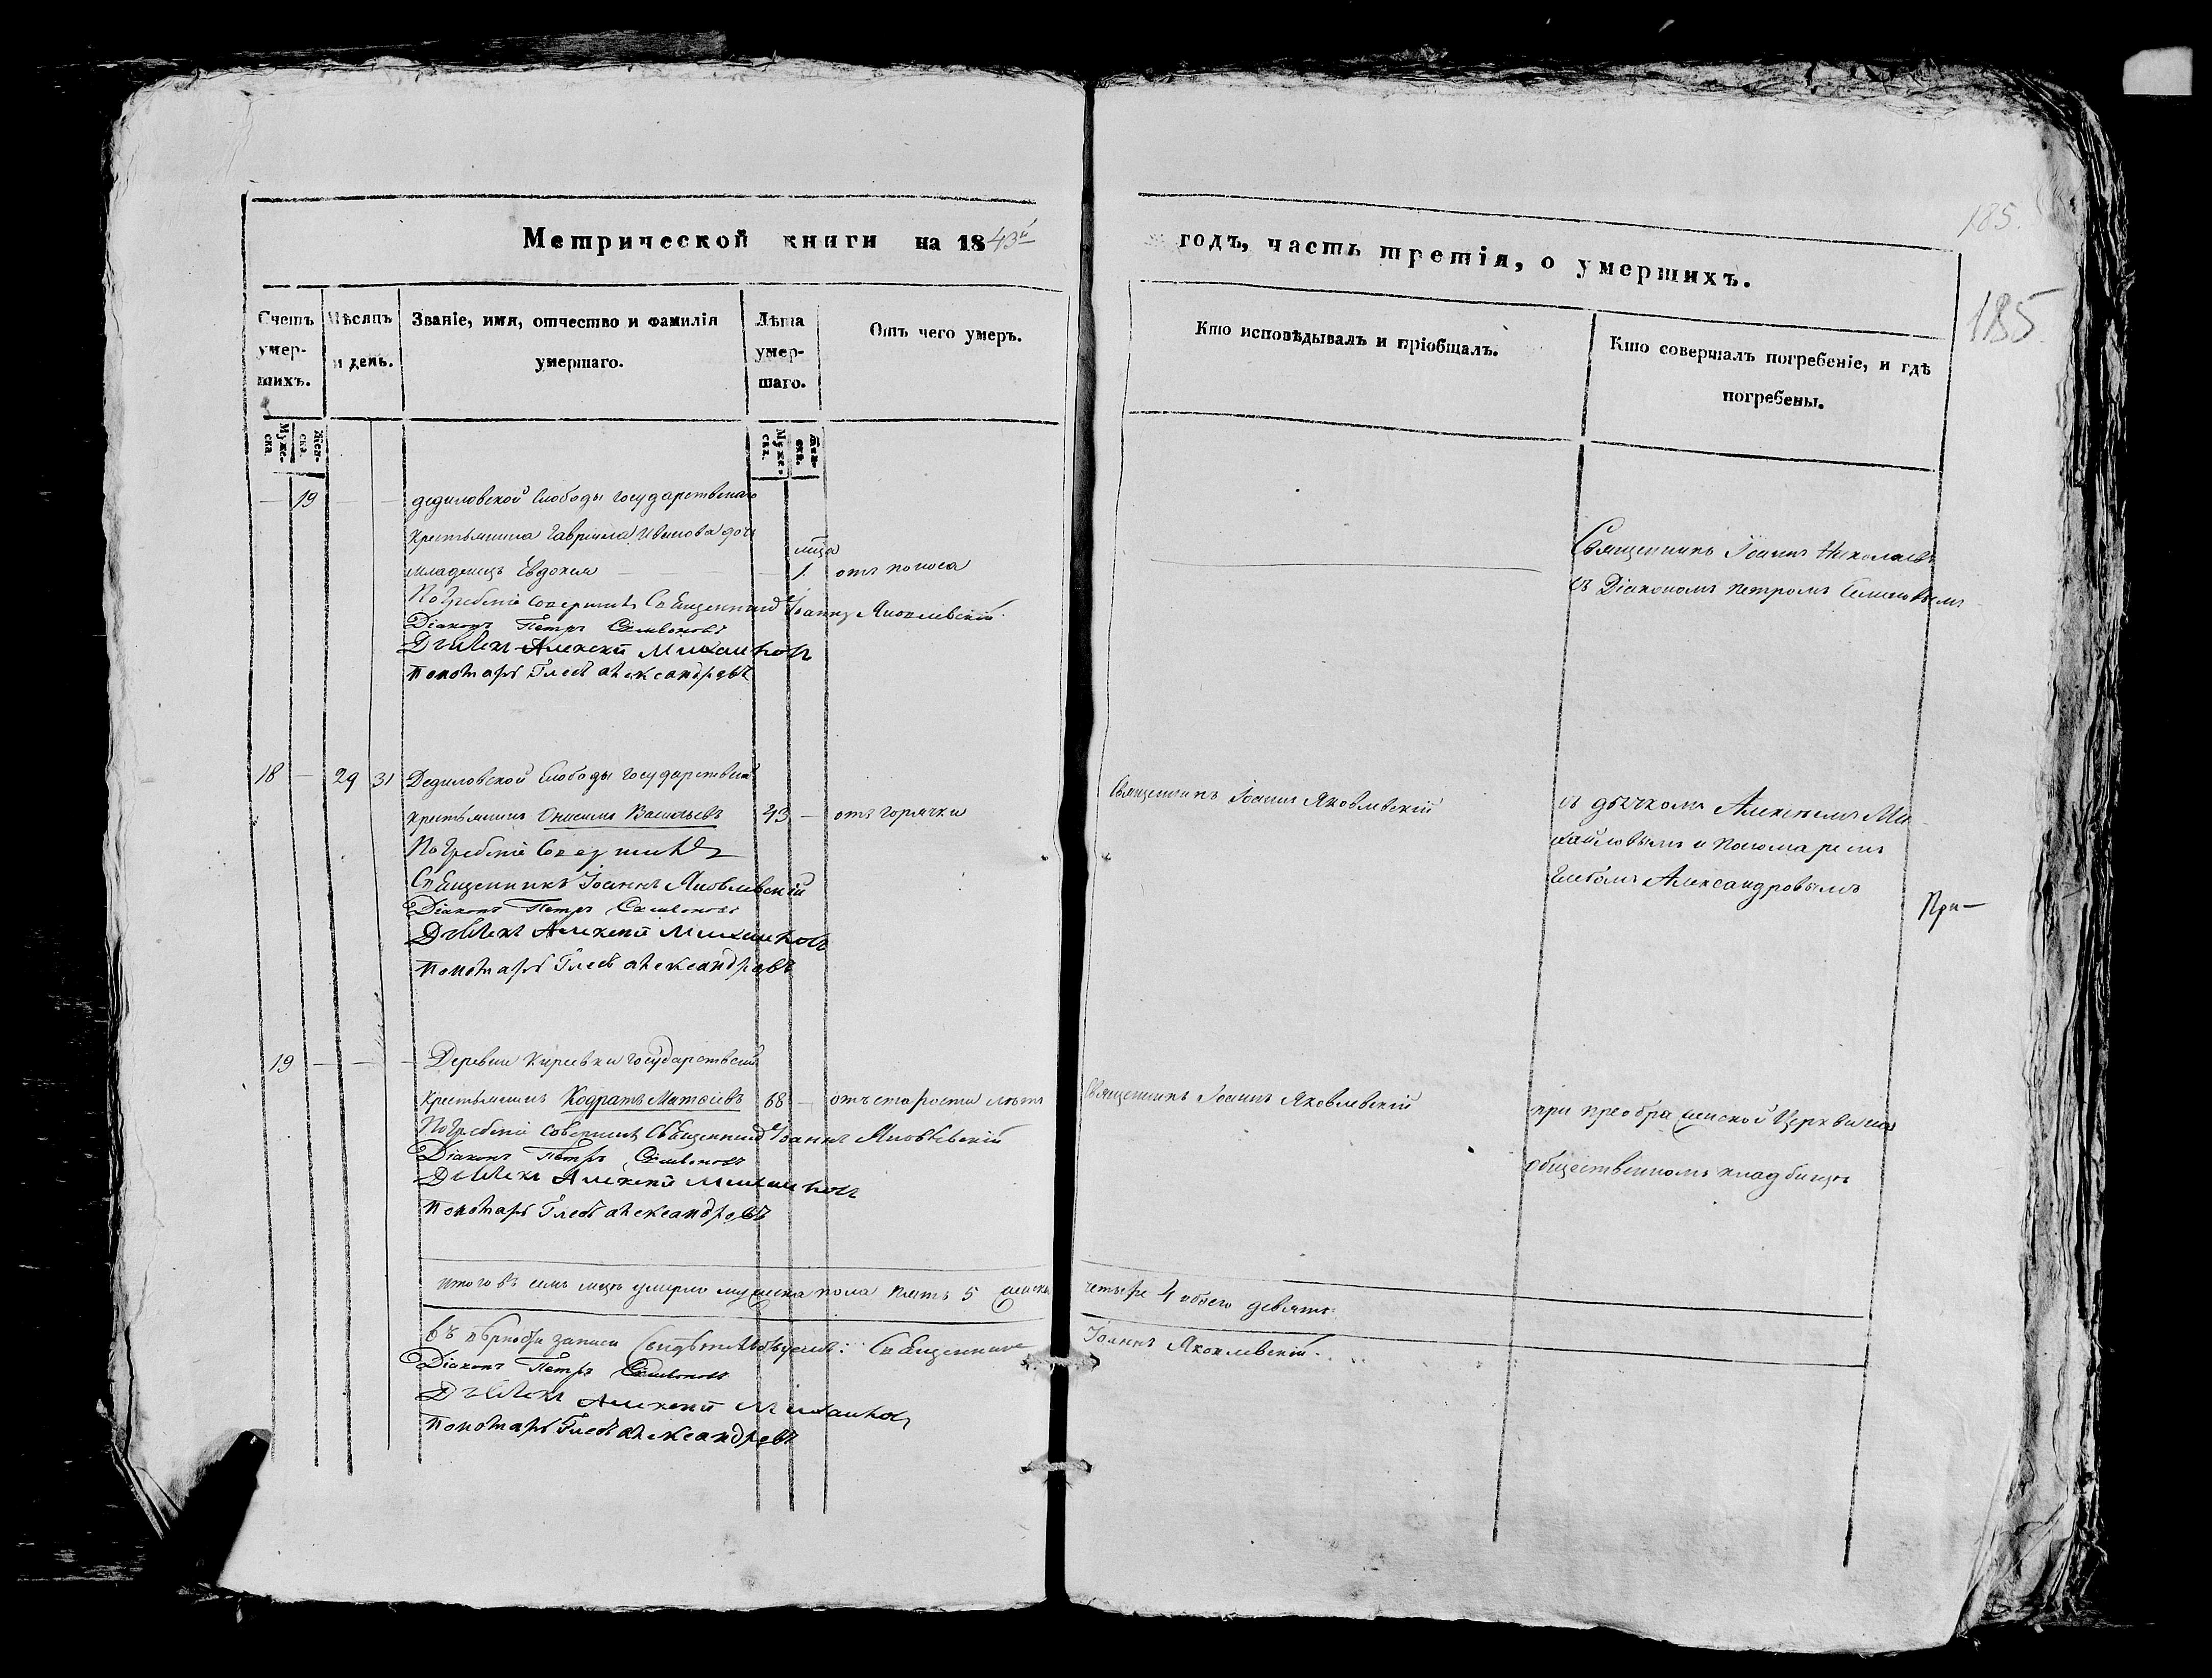 Метрической книги на 1843й
годъ, часть третія, о умершихъ.
185.
185
Счетъ умер-шихъ.
Мѣсяцъ и день.
Званіе, имя, отчество и фамилія умершаго.
Лѣта умер-шаго.
Отъ чего умеръ.
Кто исповѣдывалъ и пріобщалъ.
Кто совершалъ погребеніе, и гдѣ погребены.
Муже-ска.
Жен-ска.
Муже-ска.
Жен-ска.
— 19 — — дедиловской слободы государственаго
крестьянина Гавриила Иванова дочь
мцa
младенецъ Евдокия — 1. отъ поноса
Священникъ Іоаннъ
съ Діакономъ петромъ Семеновымъ
Погребеніе совершилъ Священникъ Іоаннъ Яковлевскій.
Діаконъ Петръ Семеновъ
Дьячекъ Алексей Михаиловъ
Пономарь Глебъ александровъ
18 — 29 31 Дедиловской слободы государственой
крестьянинъ Онисимъ Васильевъ 43 — отъ горячки
Священникъ Іоаннъ Яковлевскій
съ дьячкомъ Алексеемъ Ми
хайловымъ и пономаремъ
Глебомъ Александровымъ
При—
Погребеніе Совершилъ
Священникъ Іоаннъ Яковлевскій
Діаконъ Петръ Семеновъ
Дьячекъ Алексей Михаиловъ
Пономарь Глебъ александровъ
19 — — — Деревни Киреевки государственой
крестьянинъ Кодратъ Матѳіевъ 68 — отъ старости летъ
Священникъ Іоаннъ Яковлевскій
при преображенской Церкви на
общественномъ кладбище
Погребеніе совершилъ Священникъ Іоаннъ Яковлевскій
Діаконъ Петръ Семеновъ
Дьячекъ Алексей Михаиловъ
Пономарь Глебъ александровъ
итого въ семъ мцѣ умерло мужеска пола пять 5 женска четыре 4 обоего девять.
Въ верности записи свидетельствуемъ: Священникъ Іоаннъ Яковлевскій.
Діаконъ Петръ Семеновъ
Дьячекъ Алексей Михаиловъ
Пономарь Глебъ александровъ